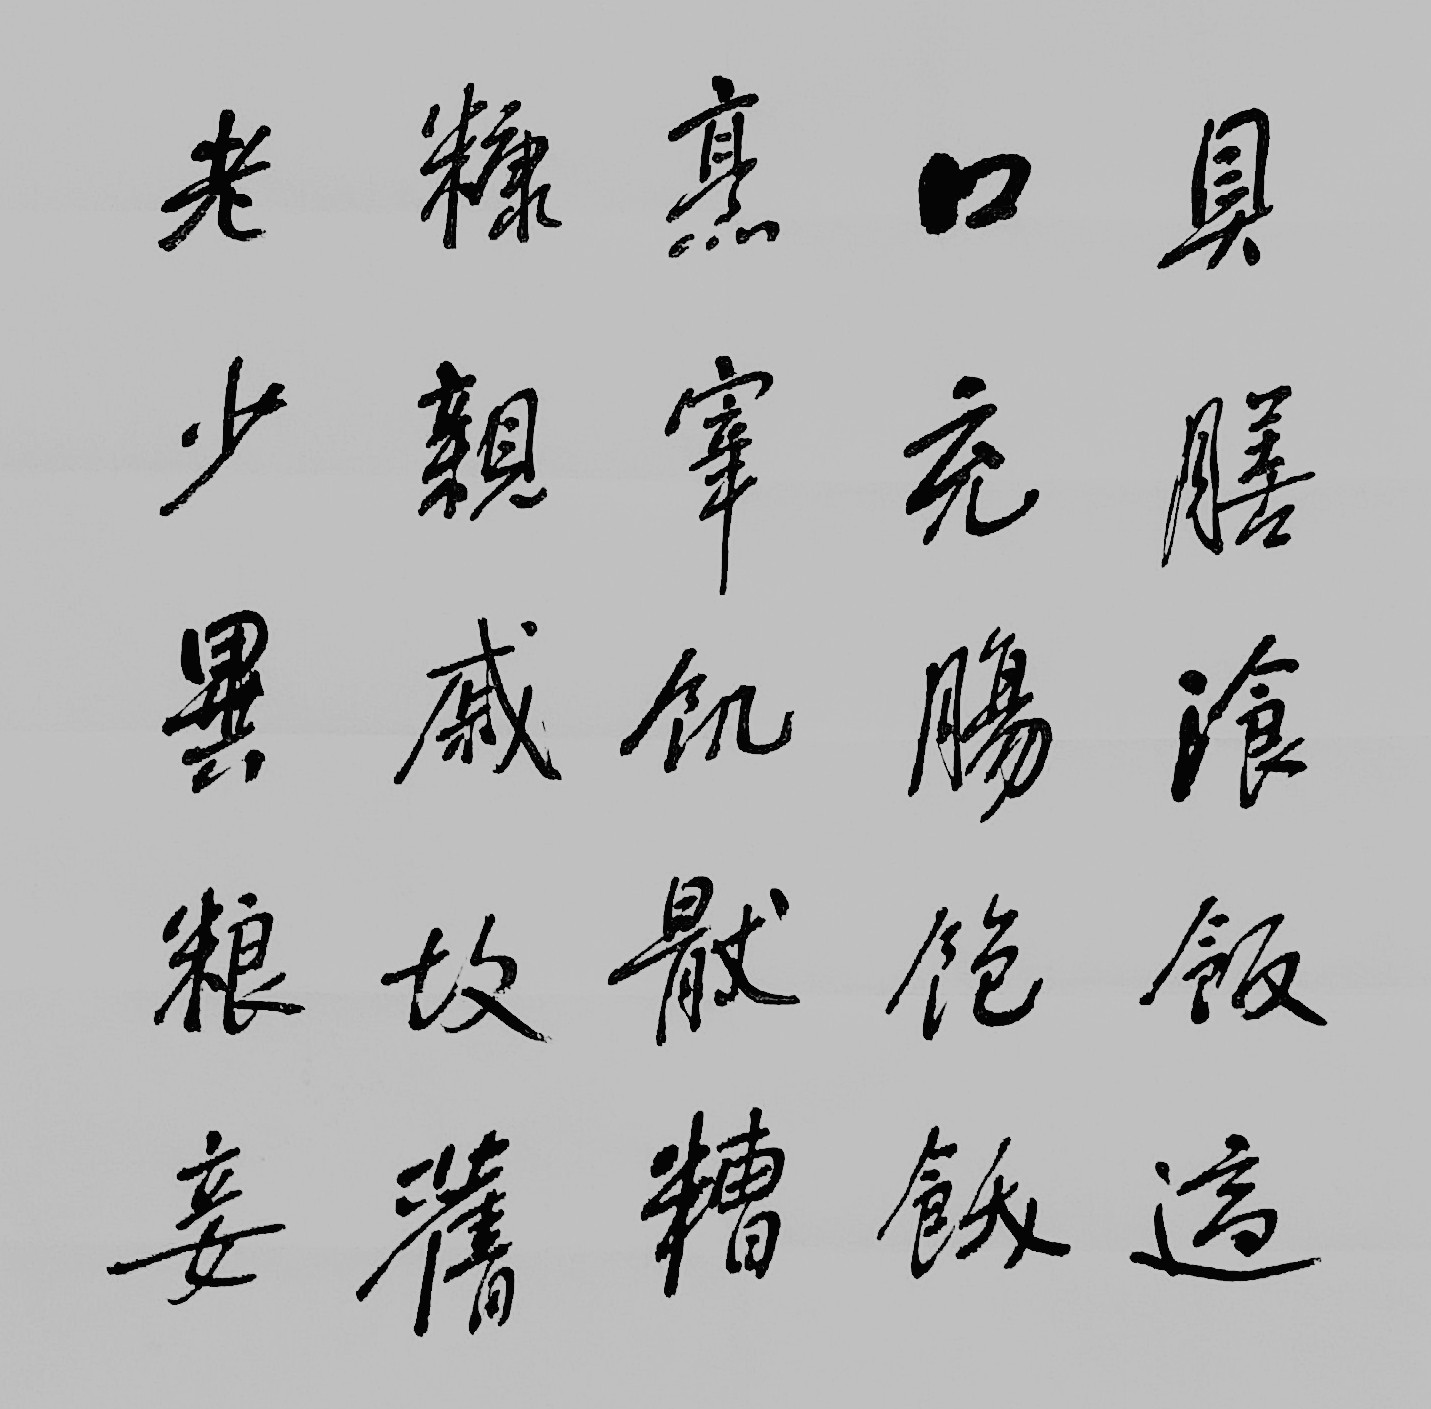 具膳湌飯適
口充腸飽飫
烹宰飢猒糟
糠親戚故舊
老少異粮妾